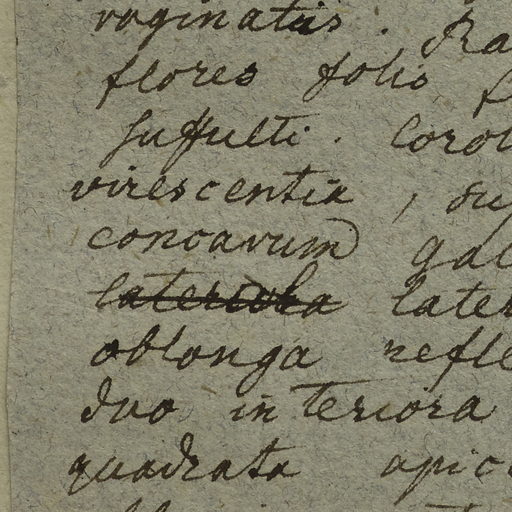 vaginatus. Ra
flores folio f
suffulti. Corol
virescentia, su
concavum gal
lateriora later
oblonga refle
duo interiora
quadrata apic